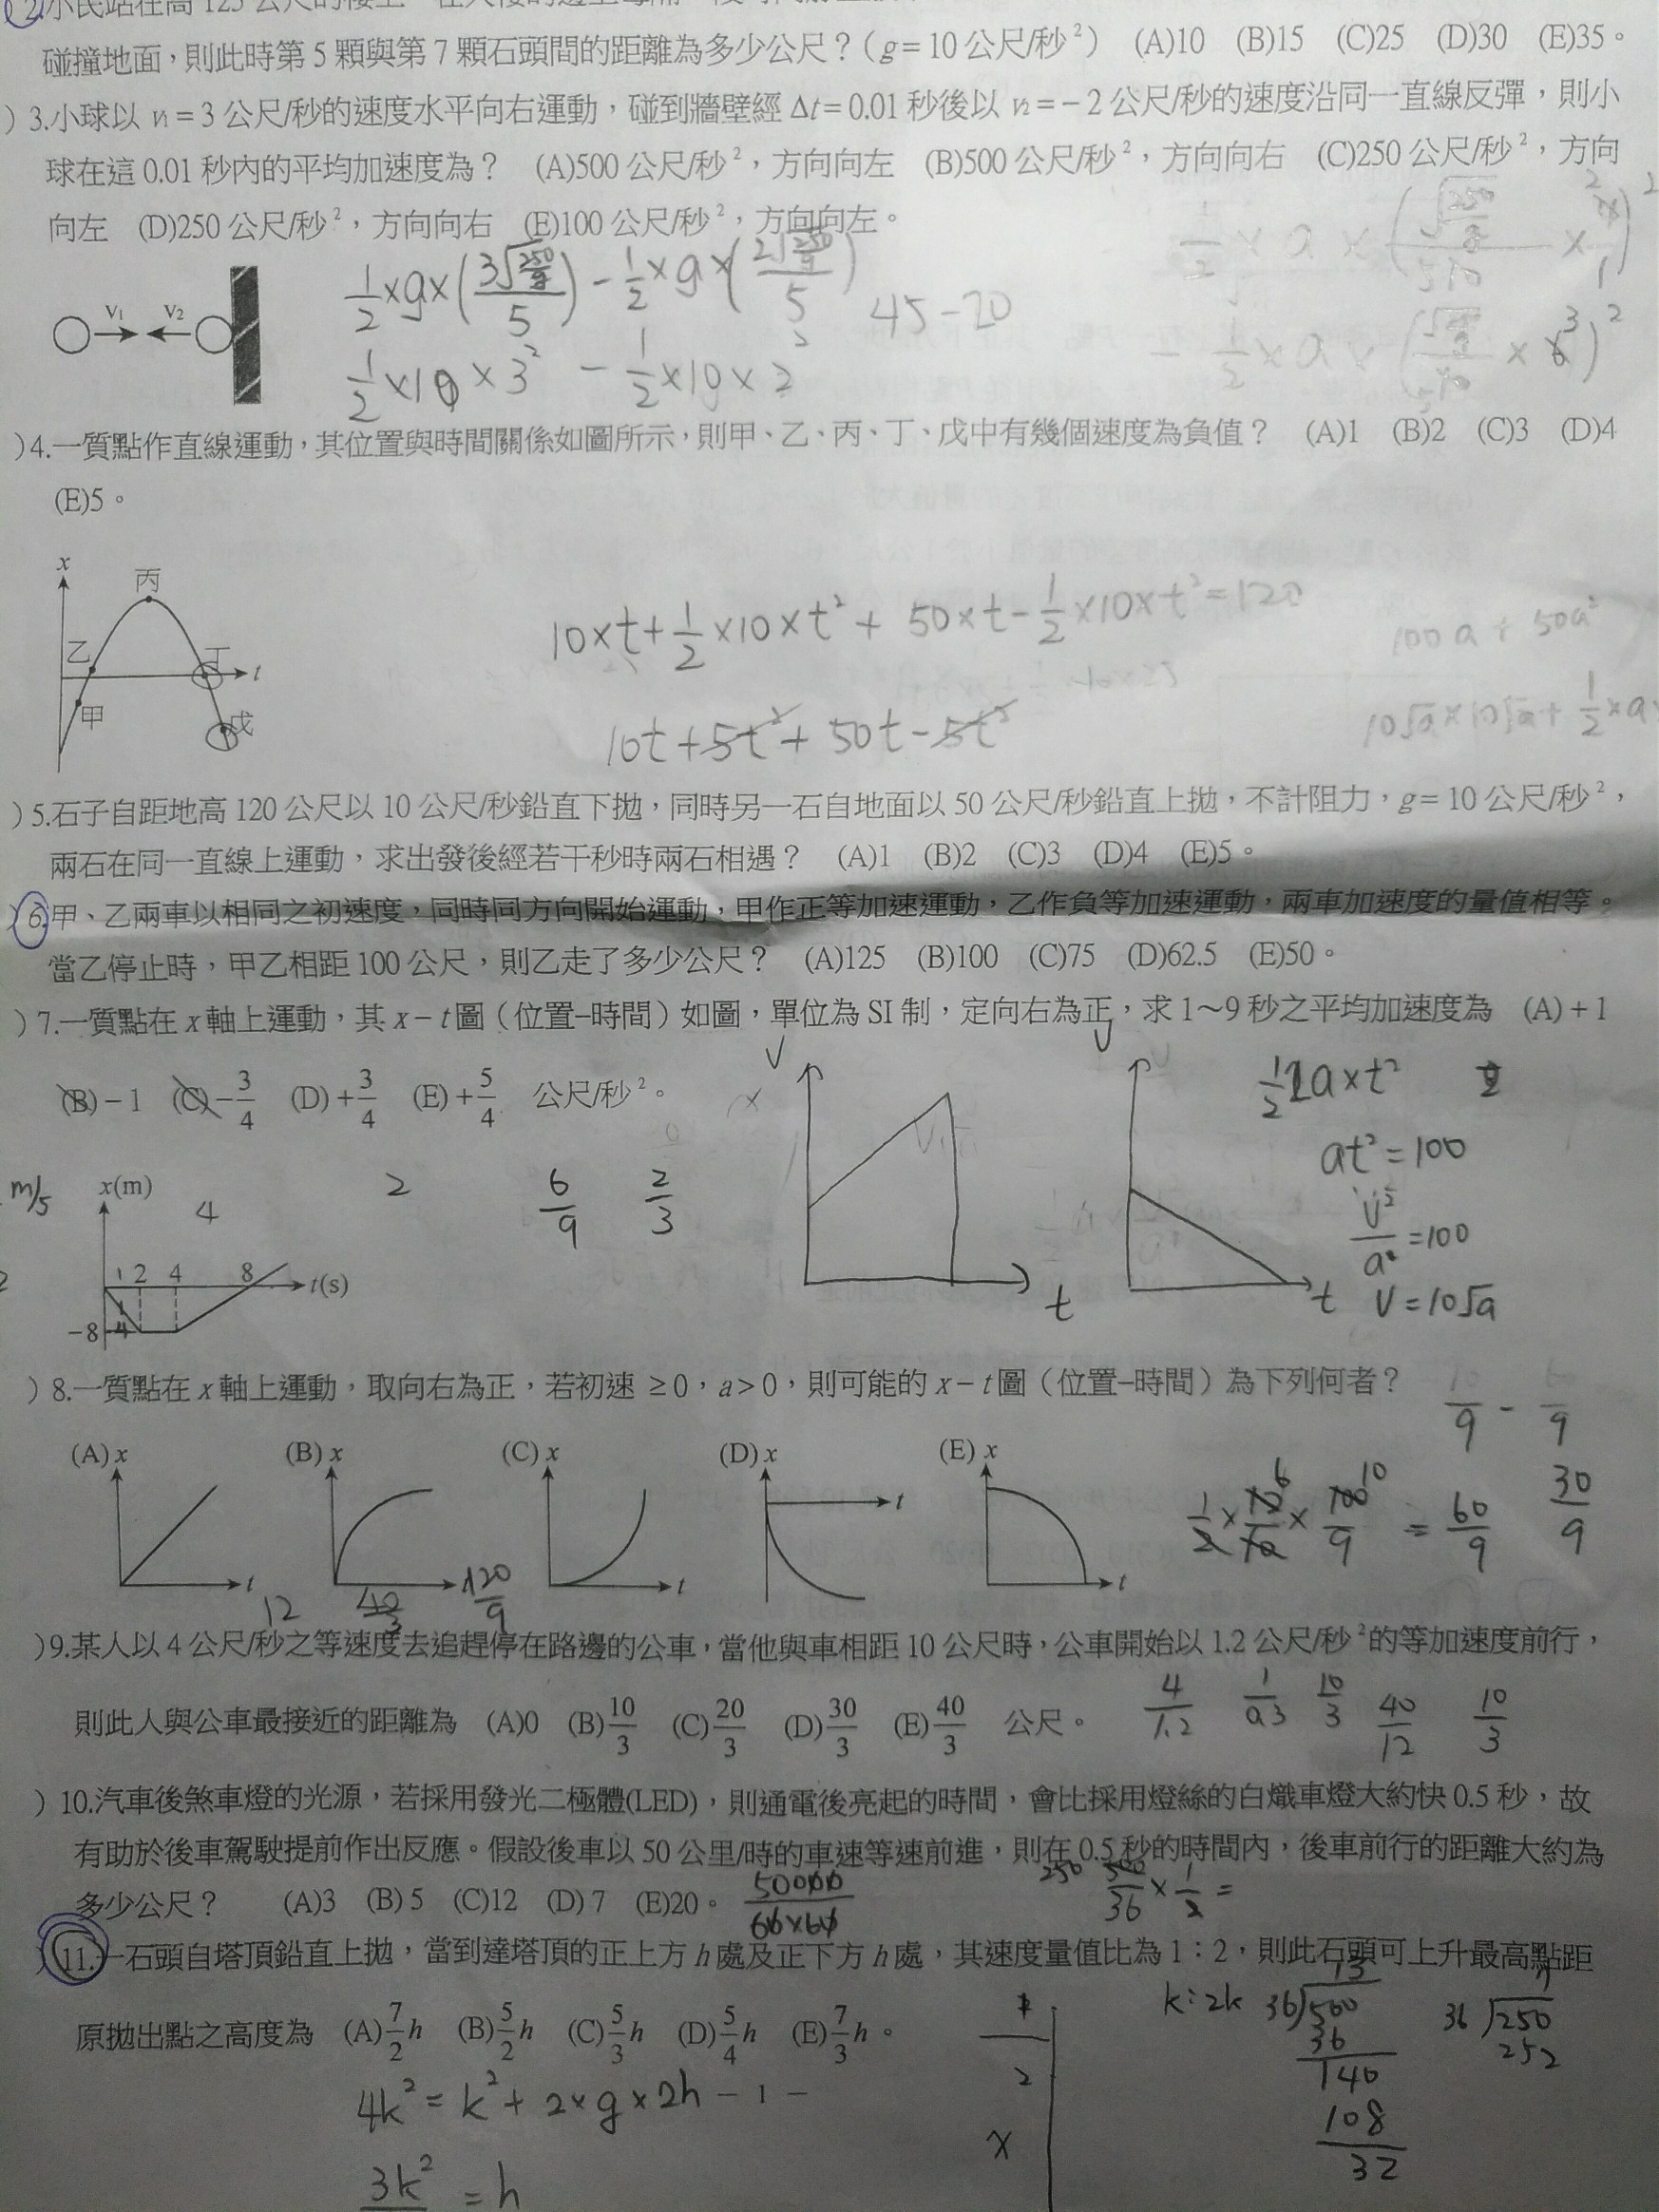 碰撞地面，則此時第 5 顆與第 7 顆石頭間的距離為多少公尺？（g = 10 公尺/秒²） (A)10 (B)15 (C)25 (D)30 (E)35。
) 3.小球以 v₁ = 3 公尺/秒的速度水平向右運動，碰到牆壁經 Δt = 0.01 秒後以 v₂ = − 2 公尺/秒的速度沿同一直線反彈，則小
球在這 0.01 秒內的平均加速度為？ (A)500 公尺/秒²，方向向左 (B)500 公尺/秒²，方向向右 (C)250 公尺/秒²，方向
向左 (D)250 公尺/秒²，方向向右 (E)100 公尺/秒²，方向向左。
V₁ V₂
45 − 20
1/2 × 10 × 3² − 1/2 × 10 × 2²
)4.一質點作直線運動，其位置與時間關係如圖所示，則甲、乙、丙、丁、戊中有幾個速度為負值？ (A)1 (B)2 (C)3 (D)4
(E)5。
x
丙
乙 丁 t
甲 戊
10×t + 1/2 ×10×t² + 50×t − 1/2 ×10×t² = 120
100a + 50a²
10t + 5t² + 50t − 5t²
) 5.石子自距地高 120 公尺以 10 公尺/秒鉛直下拋，同時另一石自地面以 50 公尺/秒鉛直上拋，不計阻力，g = 10 公尺/秒²，
兩石在同一直線上運動，求出發後經若干秒時兩石相遇？ (A)1 (B)2 (C)3 (D)4 (E)5。
) 6.甲、乙兩車以相同之初速度，同時同方向開始運動，甲作正等加速運動，乙作負等加速運動，兩車加速度的量值相等。
當乙停止時，甲乙相距 100 公尺，則乙走了多少公尺？ (A)125 (B)100 (C)75 (D)62.5 (E)50。
) 7.一質點在 x 軸上運動，其 x − t 圖（位置−時間）如圖，單位為 SI 制，定向右為正，求 1～9 秒之平均加速度為 (A) + 1
(B) − 1 (C) − 3/4 (D) + 3/4 (E) + 5/4 公尺/秒²。
V t
V t
at² = 100
V²/a = 100
V = 10√a
m/s x(m) 4 2 6/9 2/3
1 2 4 8 t(s)
−8 4
) 8.一質點在 x 軸上運動，取向右為正，若初速 ≥ 0，a > 0，則可能的 x − t 圖（位置−時間）為下列何者？
(A) x t (B) x t (C) x t (D) x t (E) x t
= 60/9 30/9
12 40/3 120/9
)9.某人以 4 公尺/秒之等速度去追趕停在路邊的公車，當他與車相距 10 公尺時，公車開始以 1.2 公尺/秒²的等加速度前行，
則此人與公車最接近的距離為 (A)0 (B)10/3 (C)20/3 (D)30/3 (E)40/3 公尺。
4/1.2 1/0.3 10/3 40/12 10/3
) 10.汽車後煞車燈的光源，若採用發光二極體(LED)，則通電後亮起的時間，會比採用燈絲的白熾車燈大約快 0.5 秒，故
有助於後車駕駛提前作出反應。假設後車以 50 公里/時的車速等速前進，則在 0.5 秒的時間內，後車前行的距離大約為
多少公尺？ (A)3 (B) 5 (C)12 (D) 7 (E)20。
50000/60×60
250 500/36 × 1/2 =
) 11.一石頭自塔頂鉛直上拋，當到達塔頂的正上方 h 處及正下方 h 處，其速度量值比為 1：2，則此石頭可上升最高點距
原拋出點之高度為 (A)7/2 h (B)5/2 h (C)5/3 h (D)5/4 h (E)7/3 h。
k : 2k
13
36 500
36
140
108
32
7
36 250
252
4k² = k² + 2×g×2h − 1 −
2
x
3k² = h